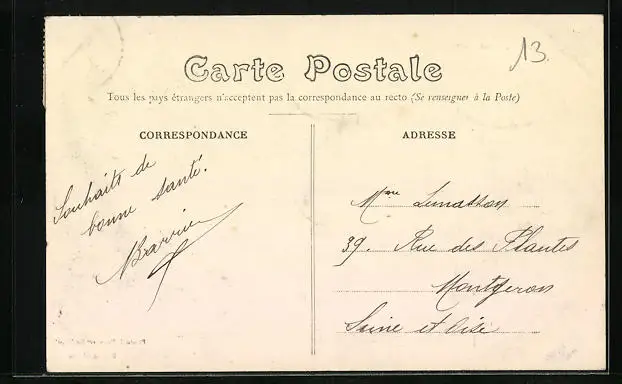 13.
Carte Postale
Tous les pays étrangers n'acceptent pas la correspondance au recto (Se renseigner à la Poste)
CORRESPONDANCE
ADRESSE
Souhaits de
bonne santé.
Mme Lemasson
39. Rue des Plantes
Montgeron
Seine et Oise